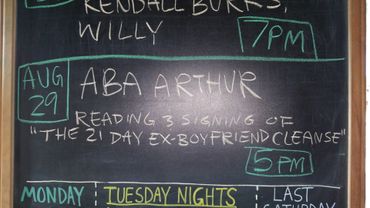 KENDALL BURKS,
WILLY
7PM
AUG
29
ABA ARTHUR
READING & SIGNING OF
"THE 21 DAY EX-BOYFRIEND CLEANSE"
5PM
MONDAY
TUESDAY NIGHTS
LAST
SATURDAY